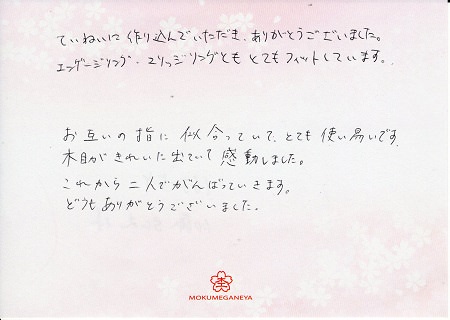 ていねいに作り込んでいただき、ありがとうございました。
エンゲージリング、マリッジリングともとてもフィットしています。
お互いの指に似合っていて、とても使い易いです。
木目がきれいに出ていて感動しました。
これから二人でがんばっていきます。
どうもありがとうございました。
MOKUMEGANEYA